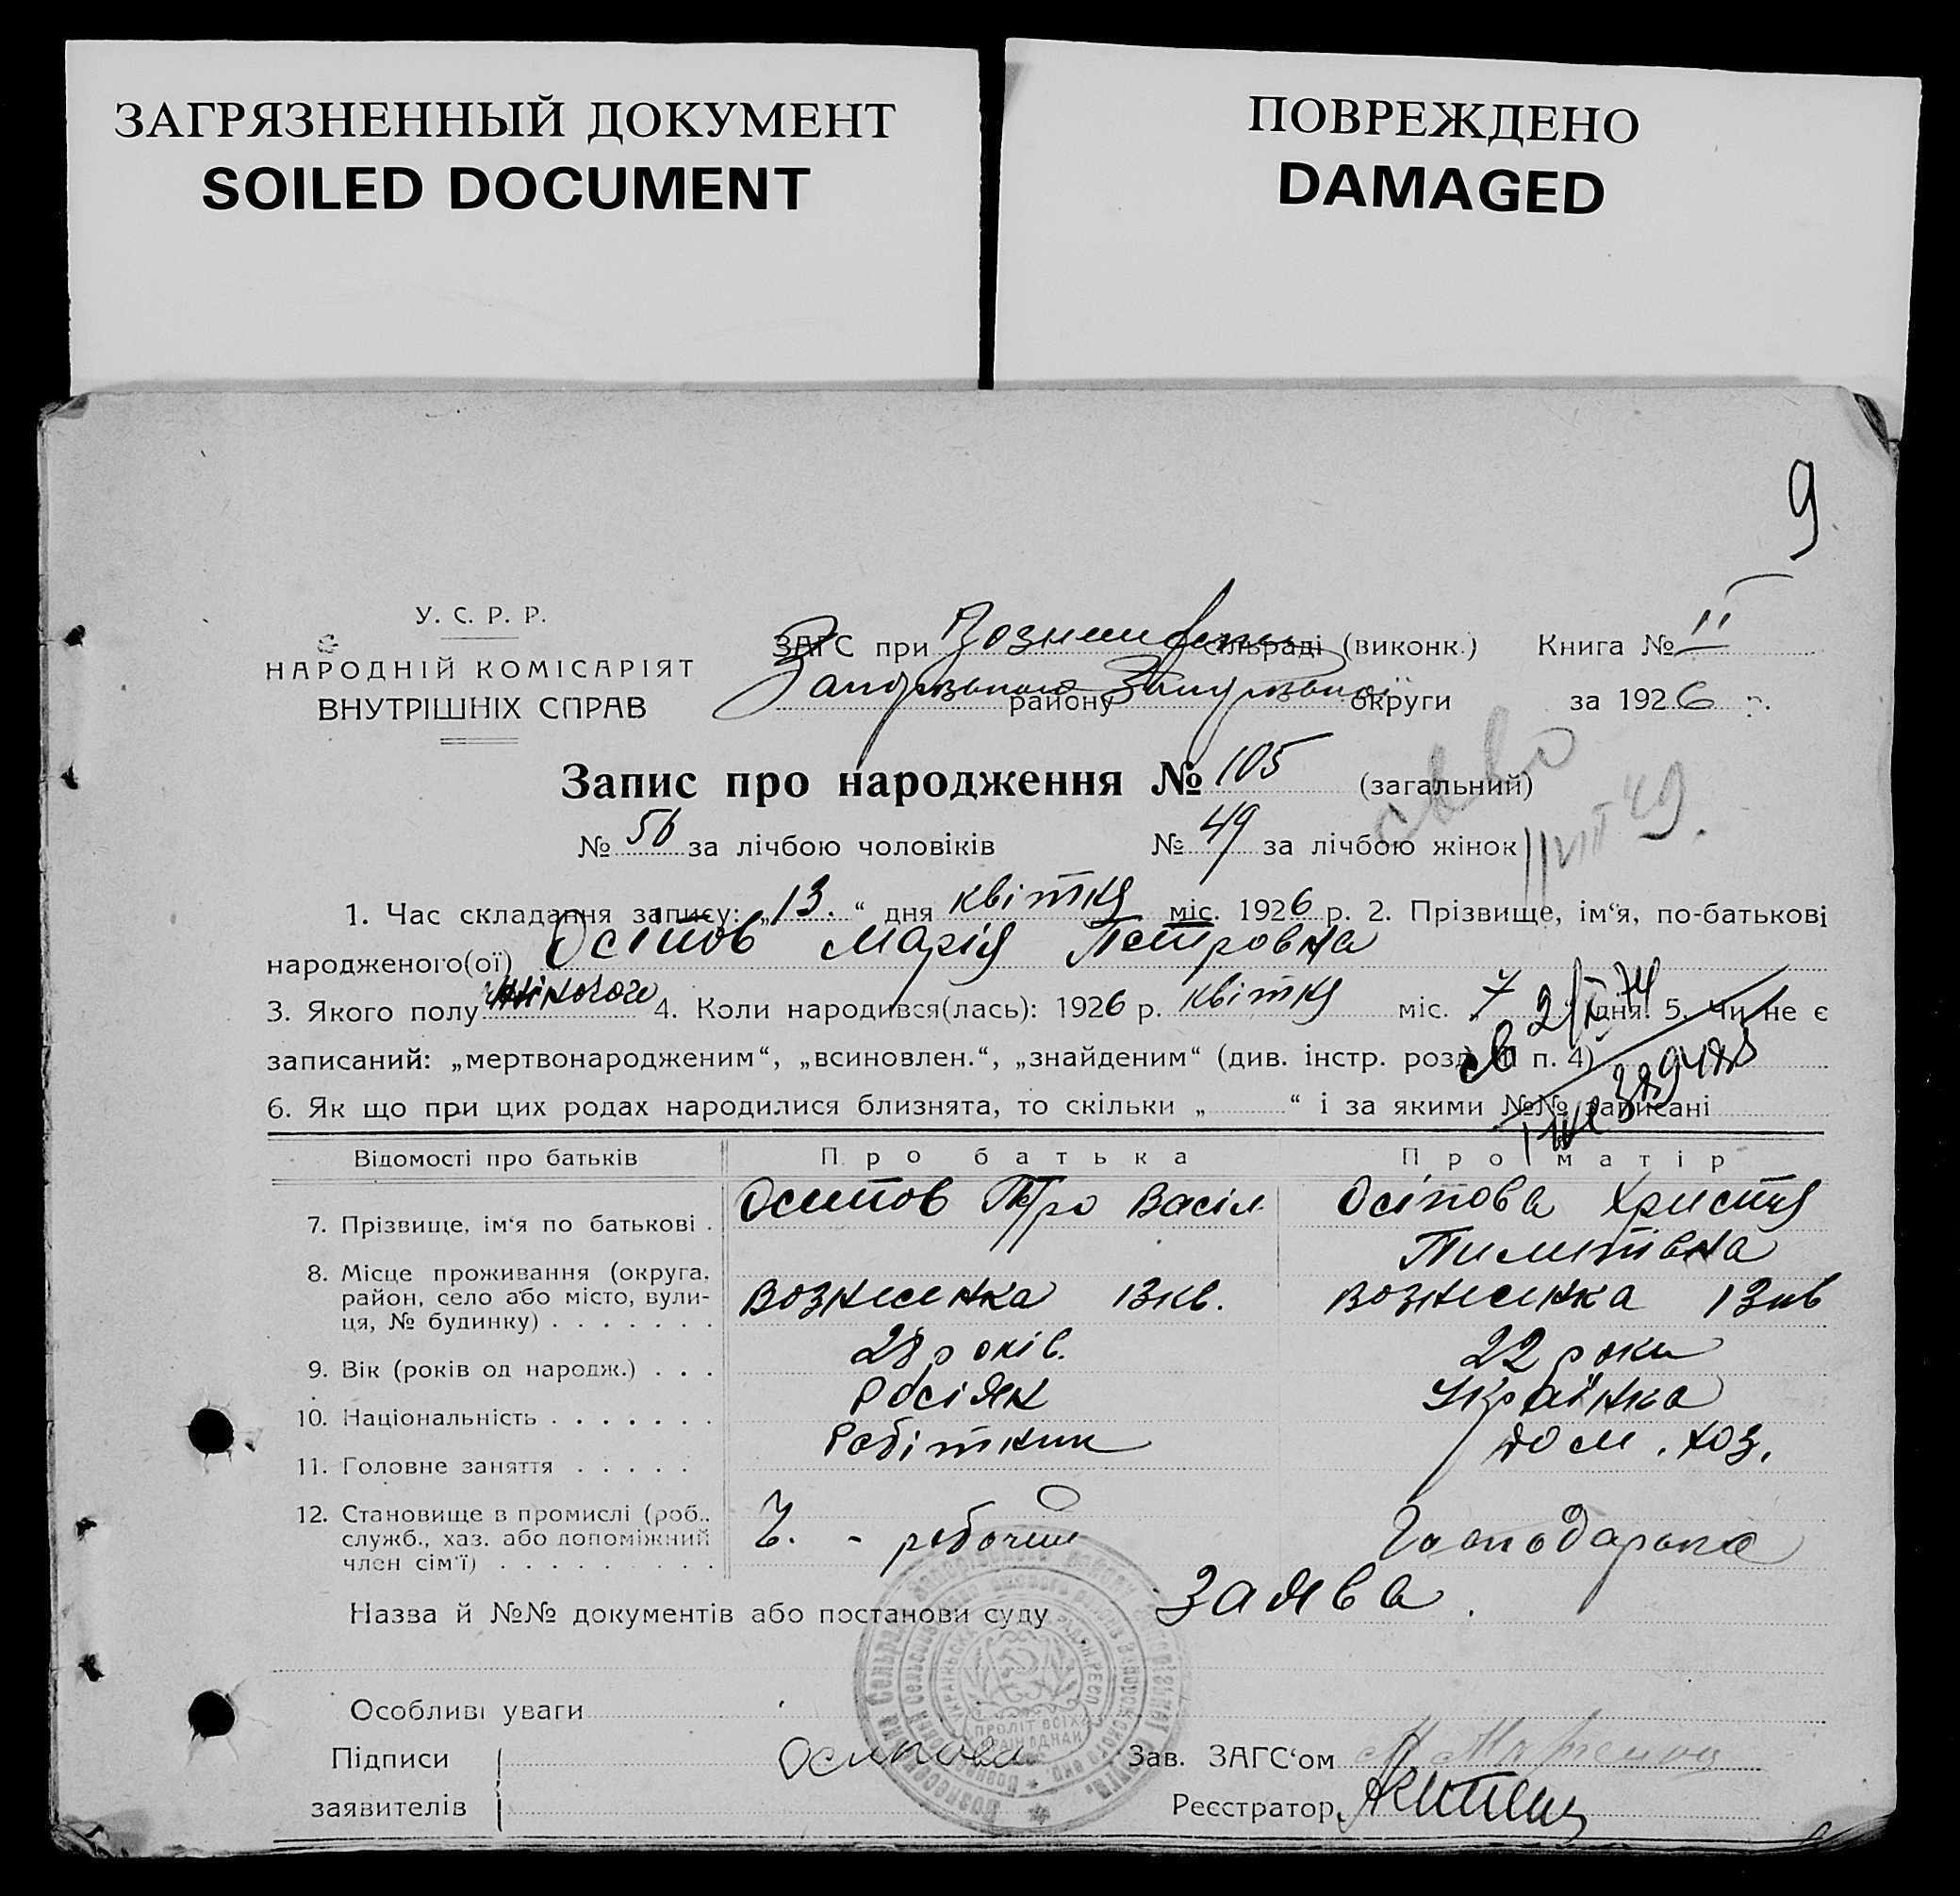 ЗАГРЯЗНЕННЫЙ ДОКУМЕНТ
SOILED DOCUMENT
ПОВРЕЖДЕНО
DAMAGED
9
У. С. Р. Р.
НАРОДНІЙ КОМІСАРІЯТ
ВНУТРІШНІХ СПРАВ
ЗАГС при сільраді (виконк.) Книга № II
району округи за 1926 р.
Запис про народження № 105 (загальний)
№ 56 за лічбою чоловіків № 49 за лічбою жінок
VIII 49.
1. Час складання запису: „13.“ дня квітня міс. 1926 р. 2. Прізвище, ім‘я, по-батькові
народженого(ої) Осіпов Марія Петровна
3. Якого полу жіночоє 4. Коли народився(лась): 1926 р. квітня міс. 7 дня. 5. Чи не є
записаний: „мертвонародженим“, „всиновлен.“, „знайденим“ (див. інстр. розд. II п. 4)
6. Як що при цих родах народилися близнята, то скільки „ “ і за якими №№ записані
Відомості про батьків Про батька Про матір
7. Прізвище, ім‘я по батькові . Осипов Петро Васіл. Осіпова Христя
8. Місце проживання (округа, район, село або місто, вулиця, № будинку) . . . . . . . Вознесенка 13 кв. Вознесенка 13 кв
9. Вік (років од народж.) . . . 28 років. 22 роки
10. Національність . . . . . . . Росіян Українка
11. Головне заняття . . . . . Робітник дом. хоз.
12. Становище в промислі (роб., служб., хаз. або допоміжний член сім‘ї) . . . . . . . . . - робочий Господарка
Назва й №№ документів або постанови суду Заява.
Особливі уваги
Підписи Осипова Зав. ЗАГС‘ом
заявителів Реєстратор